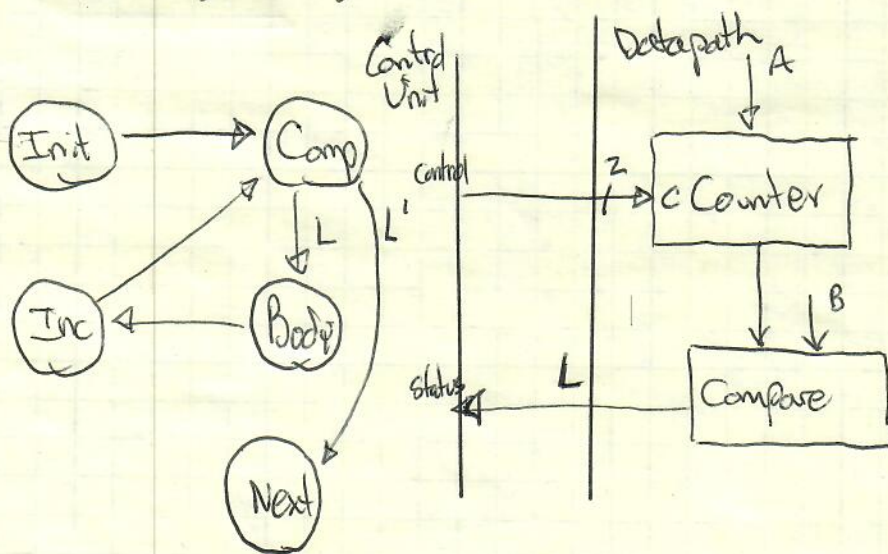 Init
Comp
L
L'
Inc
Body
Next
Control
Unit
Datapath
A
Control
2
c Counter
B
Status
L
Compare